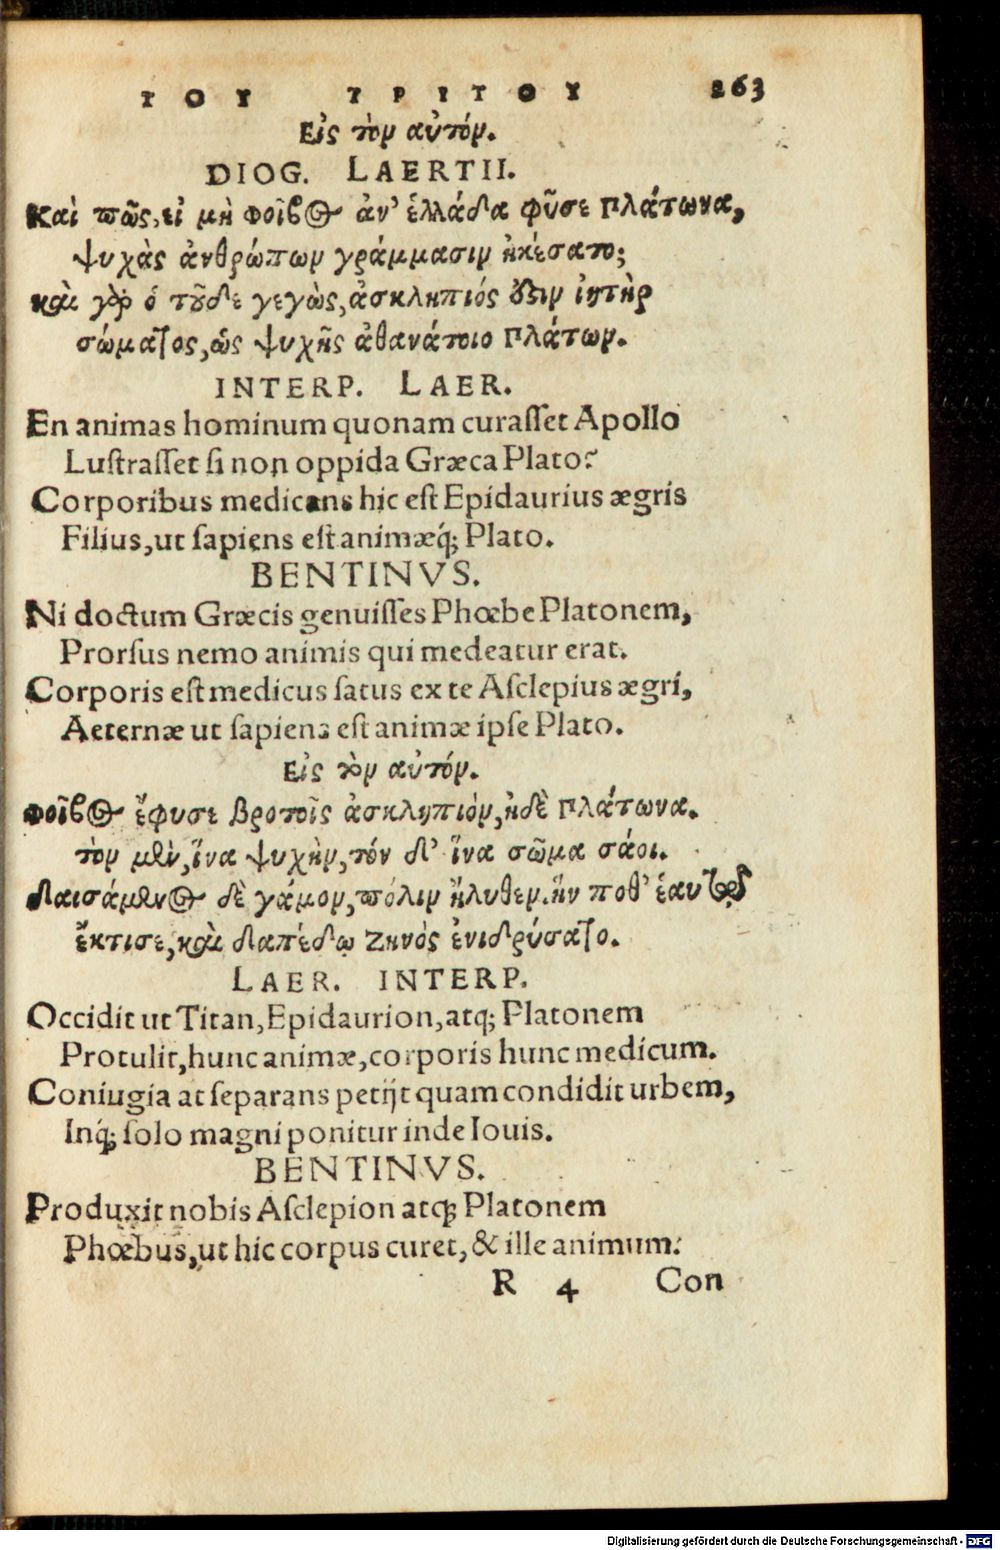 ΤΟΥ ΤΡΙΤΟΥ 263
Εἰς τὸν αὐτόν.
DIOG. LAERTII.
Καὶ πῶς, εἰ μὴ φοῖβος ἀν' ἑλλάδα φῦσε πλάτωνα,
ψυχὰς ἀνθρώπων γράμμασιν ἠκέσατο;
καὶ γὰρ ὁ τοῦδε γεγὼς, ἀσκληπιός ὅστιν ἰητὴρ
σώματος, ὡς ψυχῆς ἀθανάτοιο πλάτων.
INTERP. LAER.
En animas hominum quonam curaſſet Apollo
Luſtraſſet ſi non oppida Græca Plato?
Corporibus medicans hic eſt Epidaurius ægris
Filius, ut ſapiens eſt animæq́; Plato.
BENTINVS.
Ni doctum Græcis genuiſſes Phœbe Platonem,
Prorſus nemo animis qui medeatur erat.
Corporis eſt medicus ſatus ex te Aſclepius ægri,
Aeternæ ut ſapiens eſt animæ ipſe Plato.
Εἰς τὸν αὐτόν.
φοῖβος ἔφυσε βροτοῖς ἀσκληπιὸν, ἠδὲ πλάτωνα.
τὸν μὲν, ἵνα ψυχὴν, τόν δ' ἵνα σῶμα σάοι.
δαισάμενος δὲ γάμον, πόλιν ἤλυθεν. ἥν ποθ' ἑαυτῷ
ἔκτισε, καὶ δαπέδῳ ζηνὸς ἐνιδρύσατο.
LAER. INTERP.
Occidit ut Titan, Epidaurion, atq; Platonem
Protulit, hunc animæ, corporis hunc medicum.
Coniugia at ſeparans petijt quam condidit urbem,
Inq́; ſolo magni ponitur inde Iouis.
BENTINVS.
Produxit nobis Aſclepion atq; Platonem
Phœbus, ut hic corpus curet, & ille animum.
R 4 Con
Digitalisierung gefördert durch die Deutsche Forschungsgemeinschaft - DFG